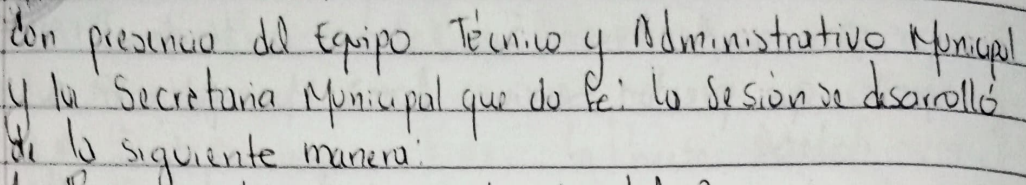 con presencia del Equipo Técnico y Administrativo Municipal
y la Secretaria Municipal que da fe: la Sesión se desarrolló
de la siguiente manera: